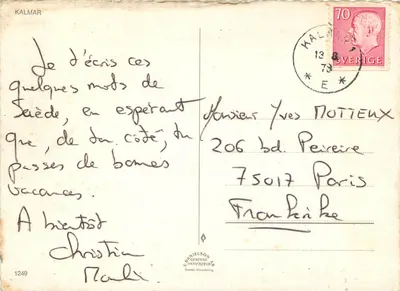 KALMAR
Je t'écris ces
quelques mots de
Suède, en espérant
que, de ton côté, tu
passes de bonnes
vacances.
A bientôt
Christian
70
SVERIGE
KALMAR
13 8
73
* E *
Monsieur Yves MOTTEUX
206 bd. Pereire
75017 Paris
Frankrike
1249